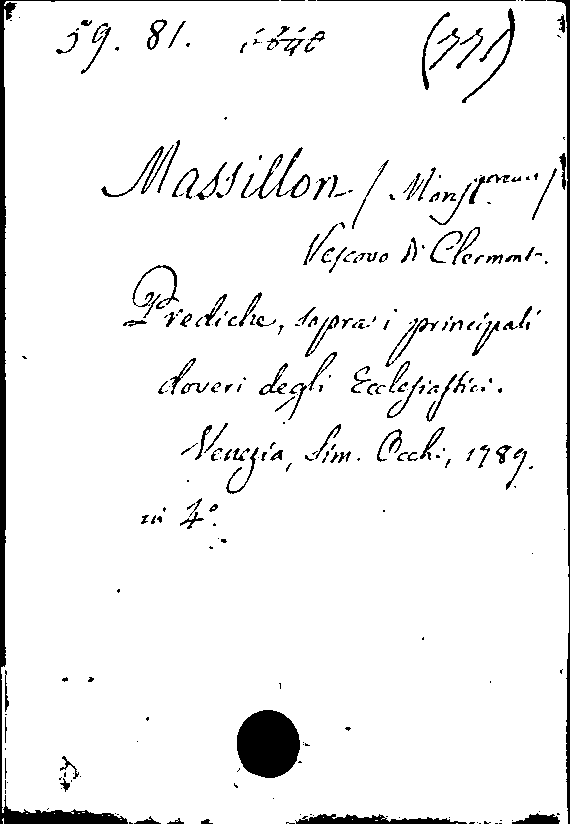 59. 81. (331)
Massillon / Monsig. /
Vescovo di Clermont.
Prediche, sopra i principali
doveri degli Ecclesiastici.
Venezia, Sim. Occhi, 1789.
in 4°.